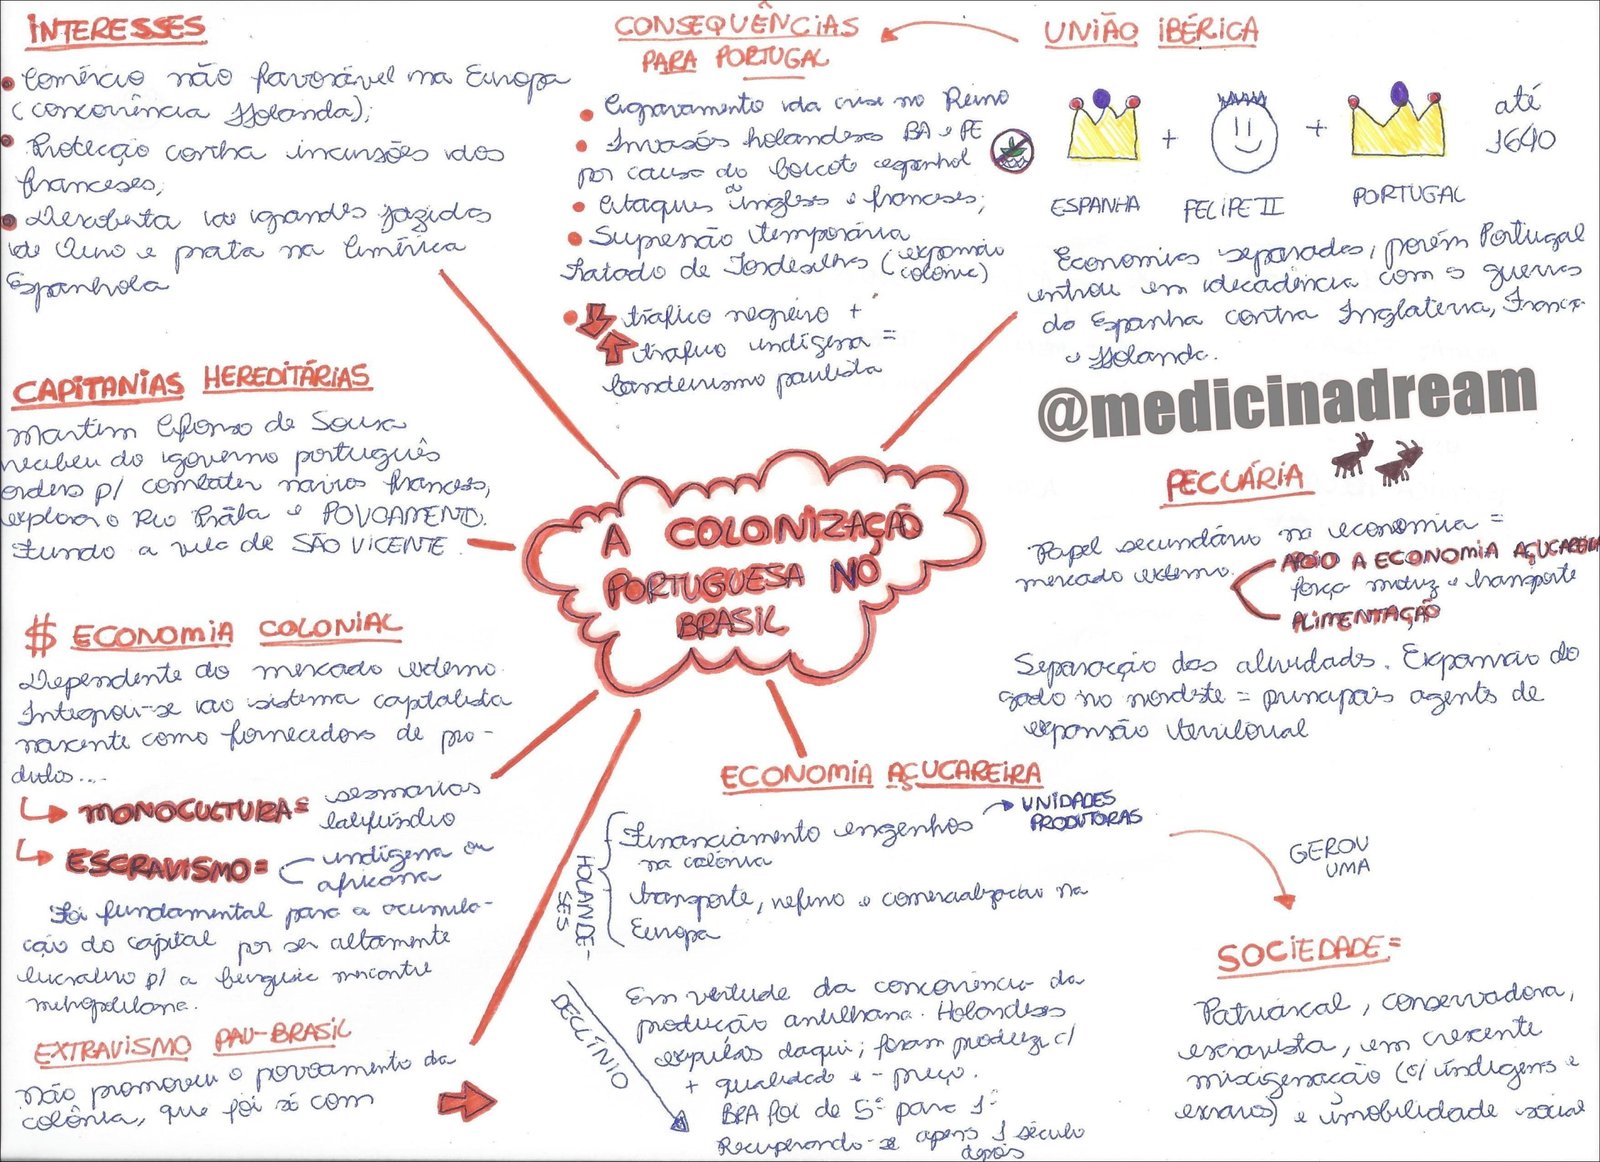 INTERESSES
• Comércio não favorável na Europa
(concorrência Holanda);
• Protecção contra incursões dos
franceses;
• Descoberta de grandes jazidas
de Ouro e prata na América
Espanhola
CONSEQUÊNCIAS
PARA PORTUGAL
• Agravamento da crise no Reino
• Invasões holandesas BA e PE
por causa do boicote espanhol
• Ataques ingleses e franceses;
• Supressão temporária
Tratado de Tordesilhas (expansão
colônia)
• tráfico negreiro +
tráfico indígena =
bandeirismo paulista
UNIÃO IBÉRICA
+ + até
1640
ESPANHA FELIPE II PORTUGAL
Economias separadas, porém Portugal
entrou em decadência com as guerras
da Espanha contra Inglaterra, França
e Holanda.
@medicinadream
CAPITANIAS HEREDITÁRIAS
Martim Afonso de Sousa
recebeu do governo português
ordens p/ combater navios franceses,
explorar o Rio Prata e POVOAMENTO.
Fundo a vila de SÃO VICENTE
A COLONIZAÇÃO
PORTUGUESA NO
BRASIL
PECUÁRIA
Papel secundário na economia =
mercado externo.
APOIO A ECONOMIA AÇUCAREIRA
força motriz e transporte
ALIMENTAÇÃO
Separação das atividades. Expansão do
gado no nordeste = principais agents de
expansão territorial
$ ECONOMIA COLONIAL
Dependente do mercado externo.
Integrou-se ao sistema capitalista
nascente como fornecedora de pro-
dutos...
MONOCULTURA = sesmarias
latifúndio
ESCRAVISMO = indígena ou
africana
Foi fundamental para a acumula-
ção do capital por ser altamente
lucrativo p/ a burguesia mercantil
metropolitana.
EXTRAVISMO PAU-BRASIL
Não promoveu o povoamento da
colônia, que foi só com
ECONOMIA AÇUCAREIRA
HOLANDE-
SES
Financiamento engenhos
na colônia
UNIDADES
PRODUTORAS
transporte, refino e comercialização na
Europa
DECLÍNIO
Em virtude da concorrência da
produção antilhana. Holandeses
expulsos daqui; foram produzir c/
+ qualidade e - preço.
BRA foi de 5º para 1º
Recuperando-se apens 1 século
depois
GEROU
UMA
SOCIEDADE =
Patriarcal, conservadora,
escravista, em crescente
miscigenação (c/ indígens e
escravos) e imobilidade social